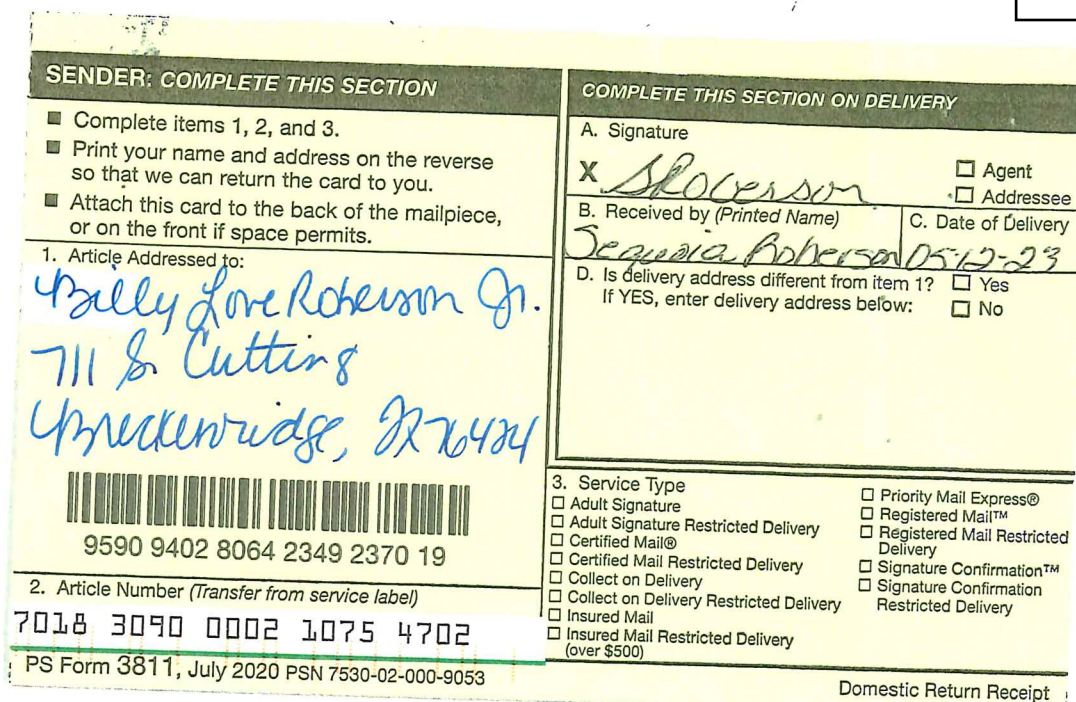 SENDER: COMPLETE THIS SECTION
■ Complete items 1, 2, and 3.
■ Print your name and address on the reverse
so that we can return the card to you.
■ Attach this card to the back of the mailpiece,
or on the front if space permits.
1. Article Addressed to:
Billy Love Roberson Jr.
711 S. Cutting
Breckenridge, TX 76424
9590 9402 8064 2349 2370 19
2. Article Number (Transfer from service label)
7018 3090 0002 1075 4702
PS Form 3811, July 2020 PSN 7530-02-000-9053
COMPLETE THIS SECTION ON DELIVERY
A. Signature
X SRoberson
☐ Agent
☐ Addressee
B. Received by (Printed Name)
Sequoia Roberson
C. Date of Delivery
05-12-23
D. Is delivery address different from item 1? ☐ Yes
If YES, enter delivery address below: ☐ No
3. Service Type
☐ Adult Signature
☐ Adult Signature Restricted Delivery
☐ Certified Mail®
☐ Certified Mail Restricted Delivery
☐ Collect on Delivery
☐ Collect on Delivery Restricted Delivery
☐ Insured Mail
☐ Insured Mail Restricted Delivery
(over $500)
☐ Priority Mail Express®
☐ Registered Mail™
☐ Registered Mail Restricted
Delivery
☐ Signature Confirmation™
☐ Signature Confirmation
Restricted Delivery
Domestic Return Receipt